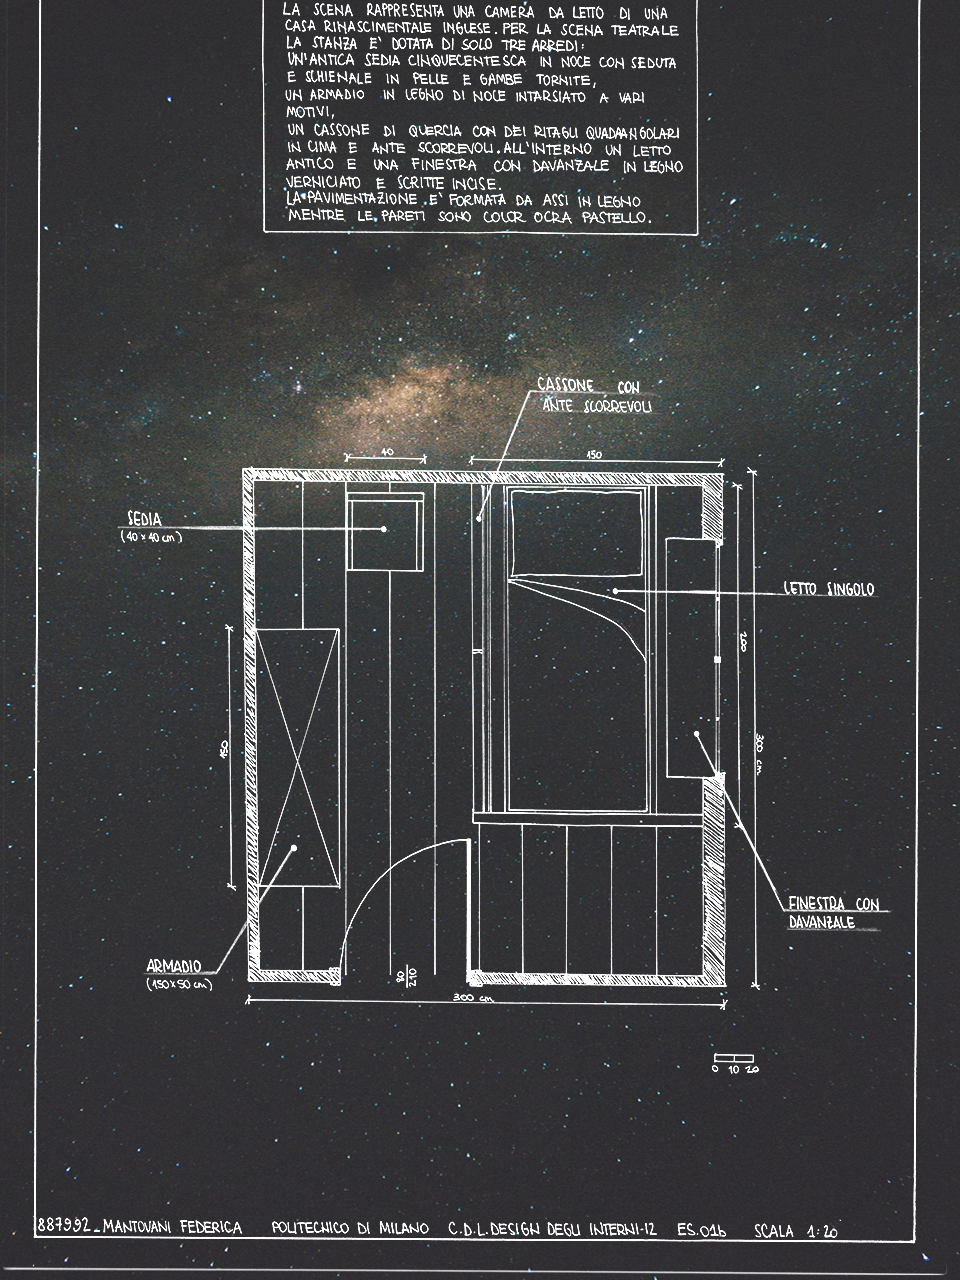 LA SCENA RAPPRESENTA UNA CAMERA DA LETTO DI UNA
CASA RINASCIMENTALE INGLESE. PER LA SCENA TEATRALE
LA STANZA E' DOTATA DI SOLO TRE ARREDI:
UN'ANTICA SEDIA CINQUECENTESCA IN NOCE CON SEDUTA
E SCHIENALE IN PELLE E GAMBE TORNITE,
UN ARMADIO IN LEGNO DI NOCE INTARSIATO A VARI
MOTIVI,
UN CASSONE DI QUERCIA CON DEI RITAGLI QUADRANGOLARI
IN CIMA E ANTE SCORREVOLI. ALL'INTERNO UN LETTO
ANTICO E UNA FINESTRA CON DAVANZALE IN LEGNO
VERNICIATO E SCRITTE INCISE.
LA PAVIMENTAZIONE E' FORMATA DA ASSI IN LEGNO
MENTRE LE PARETI SONO COLOR OCRA PASTELLO.
CASSONE CON
ANTE SCORREVOLI
40
150
SEDIA
(40 x 40 cm)
LETTO SINGOLO
200
150
300 cm
FINESTRA CON
DAVANZALE
ARMADIO
(150 x 50 cm)
80
210
300 cm
0 10 20
887992_MANTOVANI FEDERICA POLITECNICO DI MILANO C.D.L. DESIGN DEGLI INTERNI-I2 ES.01b SCALA 1:20